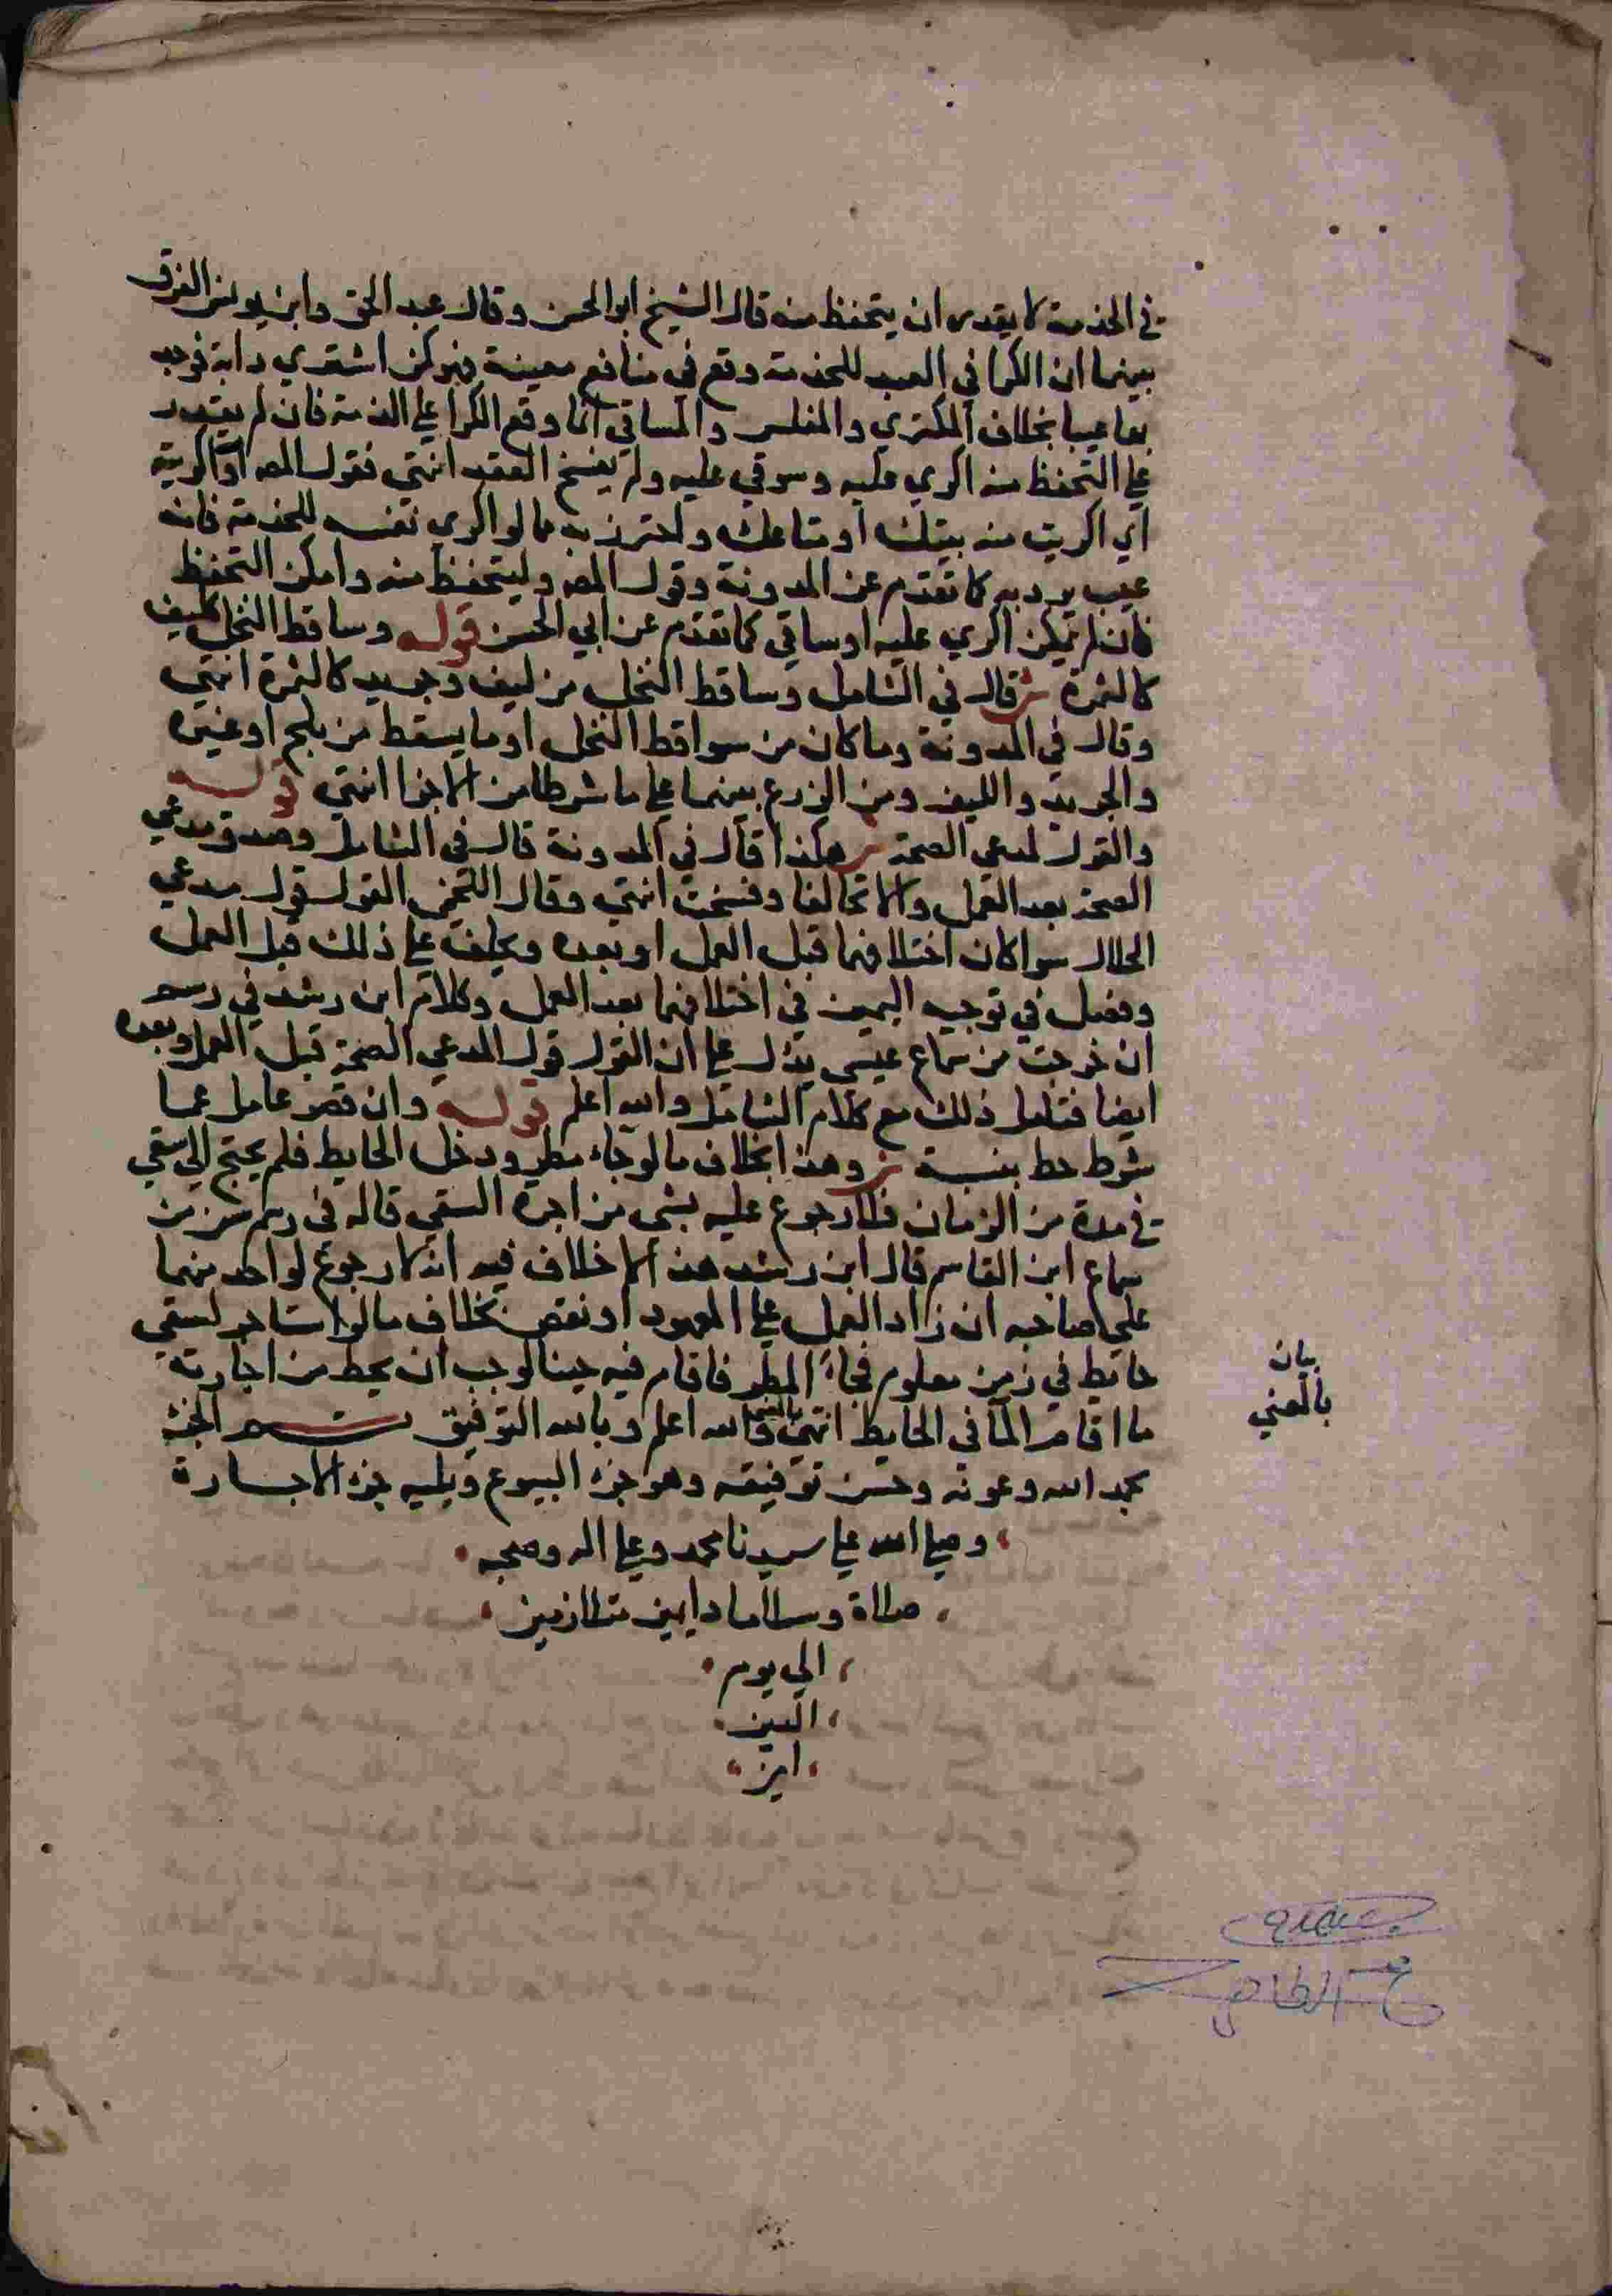 في الخدمة لا يقدر ان يتحفظ منه قال الشيخ ابو الحسن وقال عبد الحق وابن يونس الفرق
بينهما ان الكرا في العبد للخدمة وقع في منافع معينة فهو كمن اشتري دابة فوجد
بها عيبا بخلاف المكتري والمفلس والمساقي انما وقع الكرا علي الذمة فان لم يقدر
علي التحفظ منه اكري عليه وسوقي عليه ولم يفسخ العقد انتهي فقول المص او اكريته
اي اكريت منه بيتك او متاعك واحترز به مما لو اكري نفسه للخدمة فانه
عيب يرد به كما تقدم عن المدونة وقول المص وليتحفظ منه وامكن التحفظ
فان لم يمكن اكري عليه او ساقي كما تقدم عن ابي الحسن قوله وساقط النخل كليف
كالثمرة ش قال في الشامل وساقط النخل من ليف وجريد كالثمرة انتهي
وقال في المدونة وما كان من سواقط النخل او ما يسقط من بلح او غيره
والجريد والليف ومن الزرع بينهما علي ما شرطا من الاجزا انتهي قوله
والقول لمدعي الصحة ش هكذا قال في المدونة قال في الشامل وصدق مدعي
الصحة بعد العمل والا تحالفا وفسخت انتهي وقال اللخمي القول قول مدعي
الحلال سوا كان اختلافهما قبل العمل او بعده ويحلف علي ذلك قبل العمل
وفصل في توجيه اليمين في اختلافهما بعد العمل وكلام ابن رشد في رسم
ان خرجت من سماع عيسي يدل علي ان القول قول المدعي الصحة قبل العمل وبعده
ايضا فتامل ذلك مع كلام الشامل والله اعلم قوله وان قصر عامل عما
شرط حط بنسبته ش وهذا بخلاف ما لو جاء مطر ودخل الحايط فلم يحتج الي سقي
في مدة من الزمان فلا رجوع عليه بشي من اجرة السقي قاله في رسم من
سماع ابن القاسم قال ابن رشد هذا لا خلاف فيه انه لا رجوع لواحد منهما
علي صاحبه ان زاد العمل علي المعهود او نقص بخلاف ما لو استاجر لسقي
حايط في زمن معلوم فجاء المطر فاقام فيه حينا لوجب ان يحط من اجارته
ما اقام الما في الحايط انتهي بالمعني والله اعلم وبالله التوفيق تم الجزء
بحمد الله وعونه وحسن توفيقه وهو جزء البيوع ويليه جزء الاجارة
وصلي الله علي سيدنا محمد وعلي اله وصحبه
صلاة وسلاما دايمين متلازمين
الي يوم
الدين
امين
بيان
بالمعني